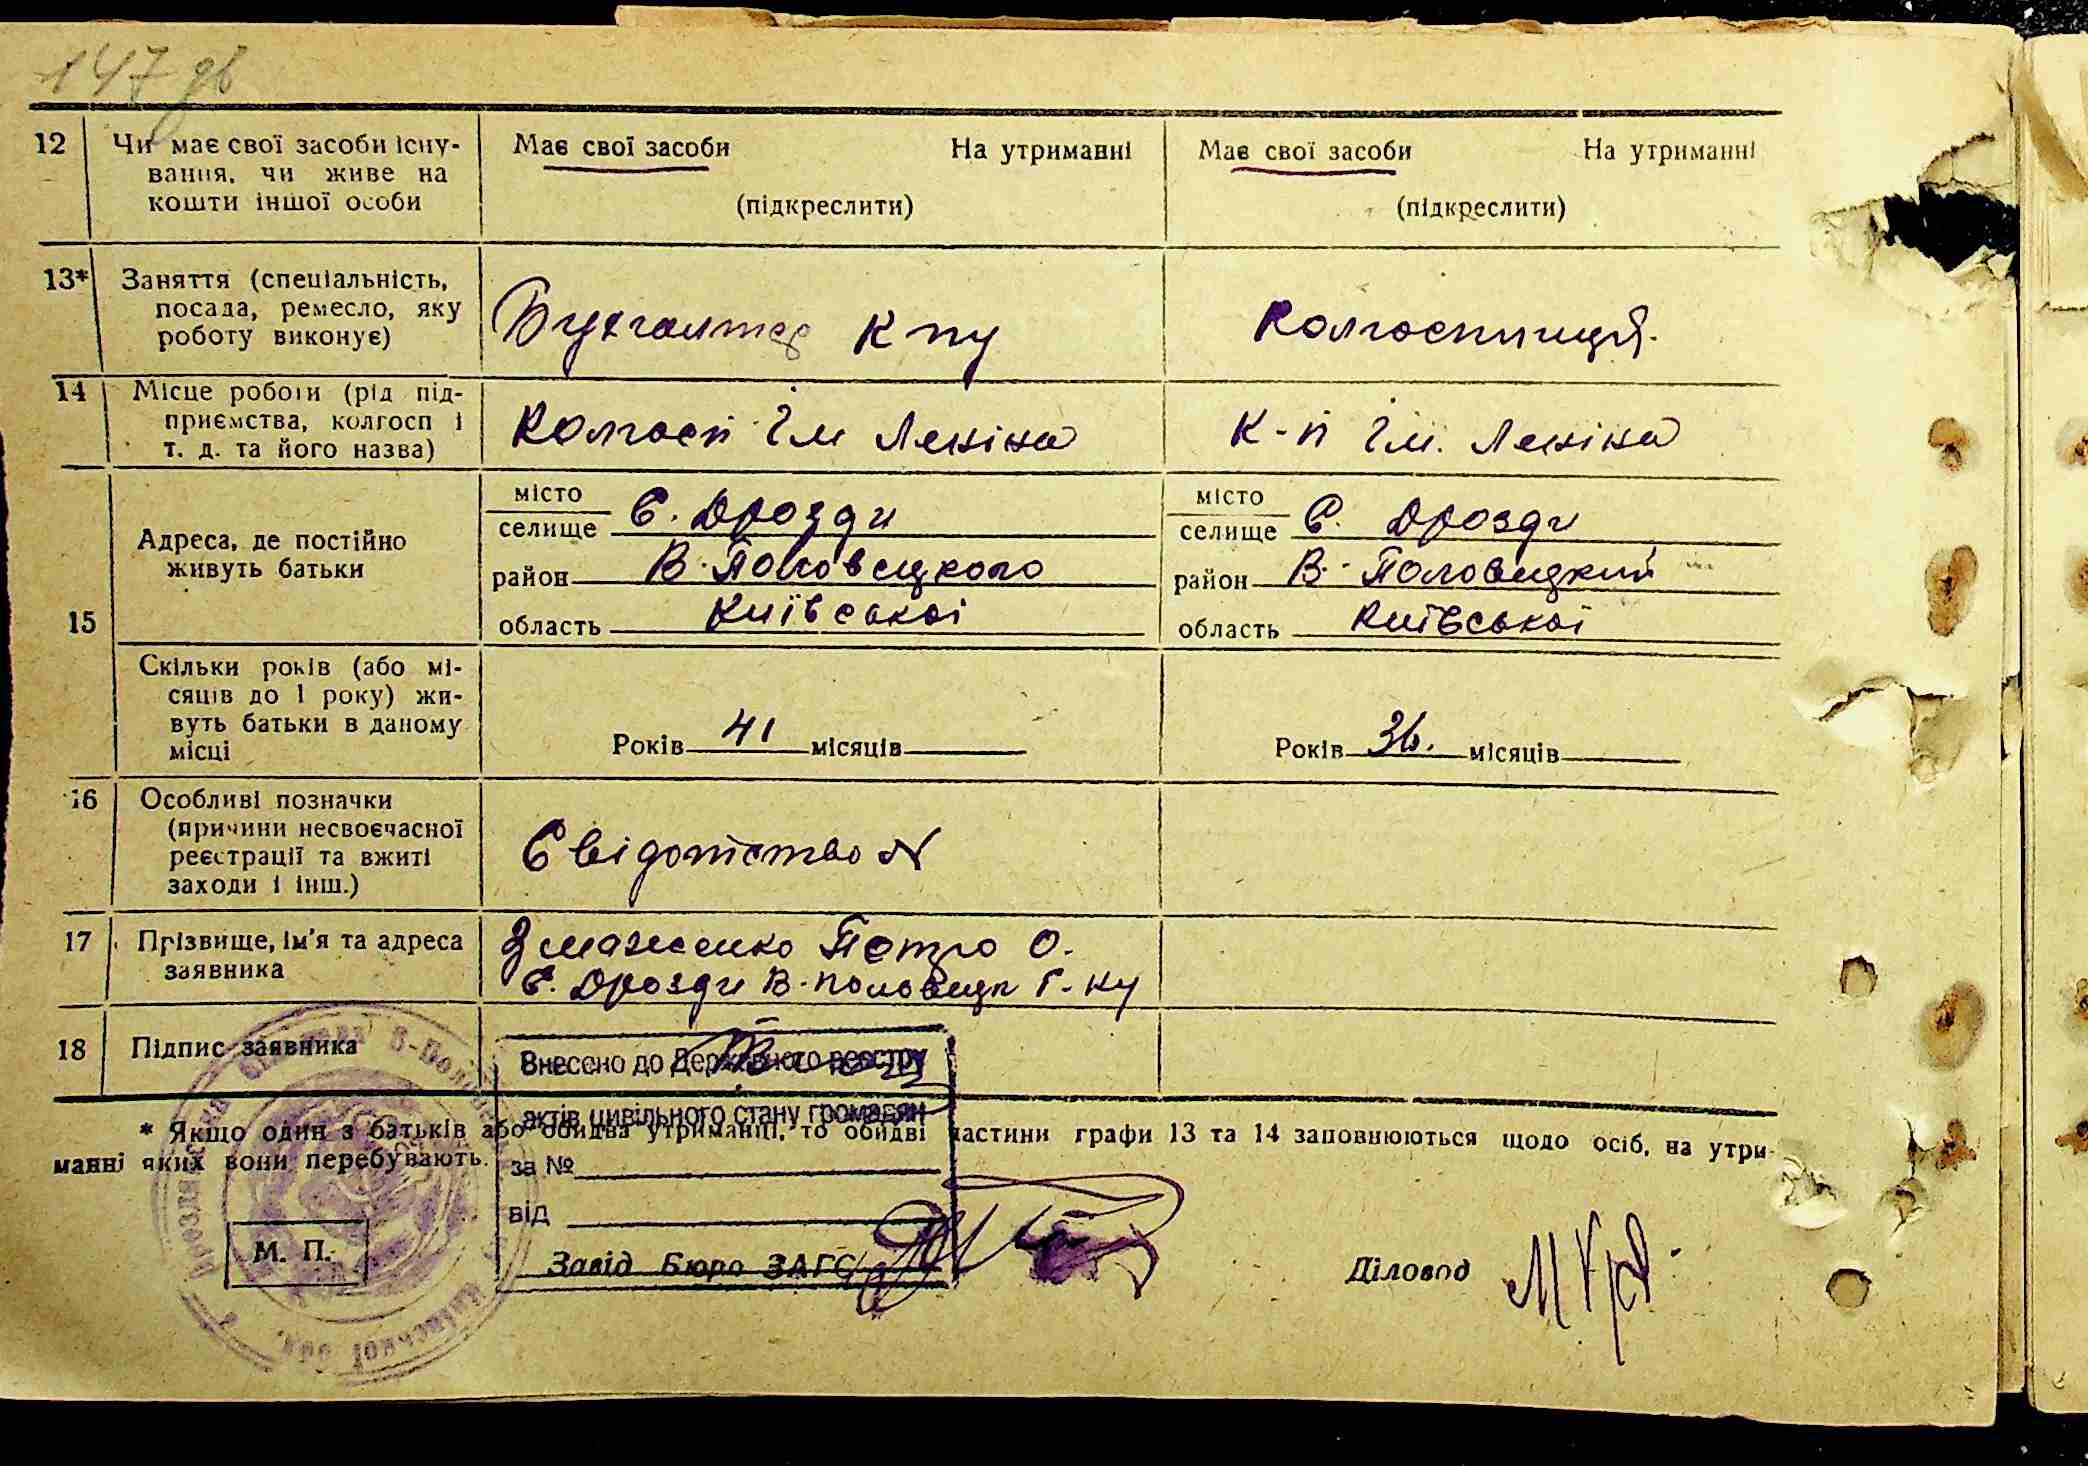 147 зв
12 Чи має свої засоби існу- Має свої засоби На утриманні Має свої засоби На утриманні
вання, чи живе на
кошти іншої особи (підкреслити) (підкреслити)
13* Заняття (спеціальність,
посада, ремесло, яку Бухгалтер к-пу Колгоспниця.
роботу виконує)
14 Місце роботи (рід під-
приємства, колгосп і Колгосп ім Леніна к-п ім. Леніна
т. д. та його назва)
15 Адреса, де постійно живуть батьки
місто
селище с. Дрозди
район В-Половецкого
область Київської
місто
селище с. Дрозди
район В-Половецкий
область Київської
Скільки років (або мі-
сяців до 1 року) жи-
вуть батьки в даному
місці Років 41 місяців Років 36. місяців
16 Особливі позначки
(причини несвоєчасної
реєстрації та вжиті Свідотство N
заходи і інш.)
17 Прізвище, ім'я та адреса Змаженко Петро О.
заявника с. Дрозди В-половецк р-ну
18 Підпис заявника
Внесено до Державного реєстру
актів цивільного стану громадян
за №
від
* Якщо один з батьків або обидва утриманці, то обидві частини графи 13 та 14 заповнюються щодо осіб, на утри-
манні яких вони перебувають.
М. П.
Завід Бюро ЗАГС
Діловод